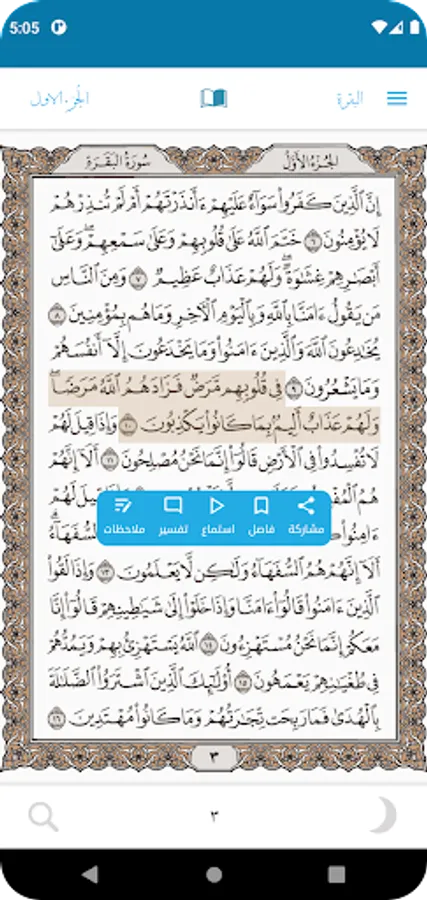 5:05
البقرة
الجزء الاول
الجزء الأول
سورة البقرة
إِنَّ ٱلَّذِينَ كَفَرُوا۟ سَوَآءٌ عَلَيْهِمْ ءَأَنذَرْتَهُمْ أَمْ لَمْ تُنذِرْهُمْ
لَا يُؤْمِنُونَ ٦ خَتَمَ ٱللَّهُ عَلَىٰ قُلُوبِهِمْ وَعَلَىٰ سَمْعِهِمْ ۖ وَعَلَىٰٓ
أَبْصَٰرِهِمْ غِشَٰوَةٌ ۖ وَلَهُمْ عَذَابٌ عَظِيمٌ ٧ وَمِنَ ٱلنَّاسِ
مَن يَقُولُ ءَامَنَّا بِٱللَّهِ وَبِٱلْيَوْمِ ٱلْءَاخِرِ وَمَا هُم بِمُؤْمِنِينَ ٨
يُخَٰدِعُونَ ٱللَّهَ وَٱلَّذِينَ ءَامَنُوا۟ وَمَا يَخْدَعُونَ إِلَّآ أَنفُسَهُمْ
وَمَا يَشْعُرُونَ ٩ فِى قُلُوبِهِم مَّرَضٌ فَزَادَهُمُ ٱللَّهُ مَرَضًا ۖ
وَلَهُمْ عَذَابٌ أَلِيمٌۢ بِمَا كَانُوا۟ يَكْذِبُونَ ١٠ وَإِذَا قِيلَ لَهُمْ
لَا تُفْسِدُوا۟ فِى ٱلْأَرْضِ قَالُوٓا۟ إِنَّمَا نَحْنُ مُصْلِحُونَ ١١ أَلَآ إِنَّهُمْ
هُمُ لَهُمْ
مشاركة
فاصل
استماع
تفسير
ملاحظات
أَلَآ إِنَّهُمْ هُمُ ٱلسُّفَهَآءُ وَلَٰكِن لَّا يَعْلَمُونَ ١٣ وَإِذَا لَقُوا۟
ٱلَّذِينَ ءَامَنُوا۟ قَالُوٓا۟ ءَامَنَّا وَإِذَا خَلَوْا۟ إِلَىٰ شَيَٰطِينِهِمْ قَالُوٓا۟ إِنَّا
مَعَكُمْ إِنَّمَا نَحْنُ مُسْتَهْزِءُونَ ١٤ ٱللَّهُ يَسْتَهْزِئُ بِهِمْ وَيَمُدُّهُمْ
فِى طُغْيَٰنِهِمْ يَعْمَهُونَ ١٥ أُو۟لَٰٓئِكَ ٱلَّذِينَ ٱشْتَرَوُا۟ ٱلضَّلَٰلَةَ
بِٱلْهُدَىٰ فَمَا رَبِحَت تِّجَٰرَتُهُمْ وَمَا كَانُوا۟ مُهْتَدِينَ ١٦
٣
٣